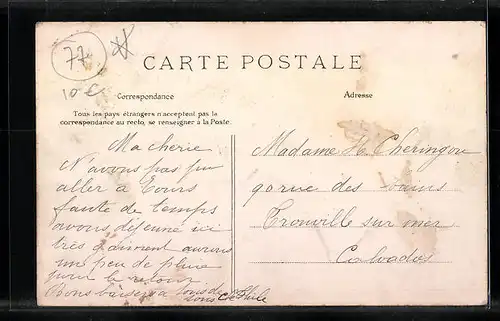 77
10 €
CARTE POSTALE
Correspondance
Adresse
Tous les pays étrangers n'acceptent pas la
correspondance au recto, se renseigner à la Poste.
Ma cherie
N'avons pas pu
aller a Tours
faute de temps
avons déjeuné ici
très aurons
un peu de pluie
pour le retour
Bons baisers a tous de
tous
Madame H. Cheringou
90 rue des bains
Trouville sur mer
Calvados